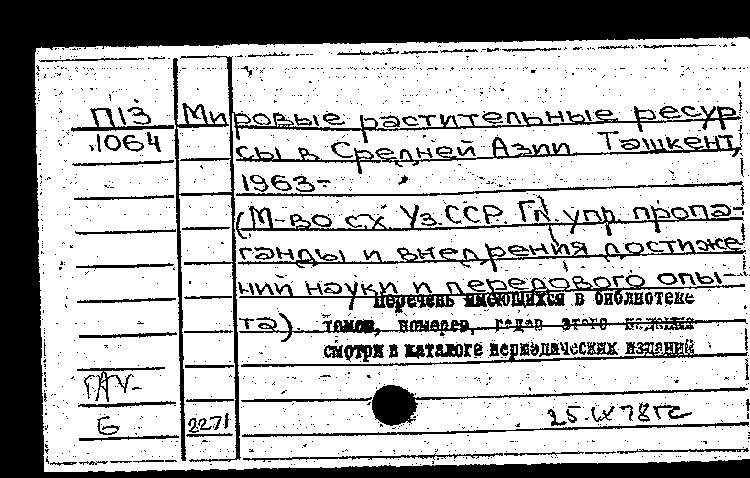 П13 Мировые растительные ресур
1064 сы в Средней Азии Ташкент,
1963-
(М-во с.х. Уз.ССР. Гл. упр. пропа-
ганды и внедрения достиже
ний науки и передового опы-
Перечень имеющихся в библиотеке
та)
томов, номеров, годов этого издания
смотри в каталоге периодических изданий
ГАУ-
Б 2271 25.IX 78 г